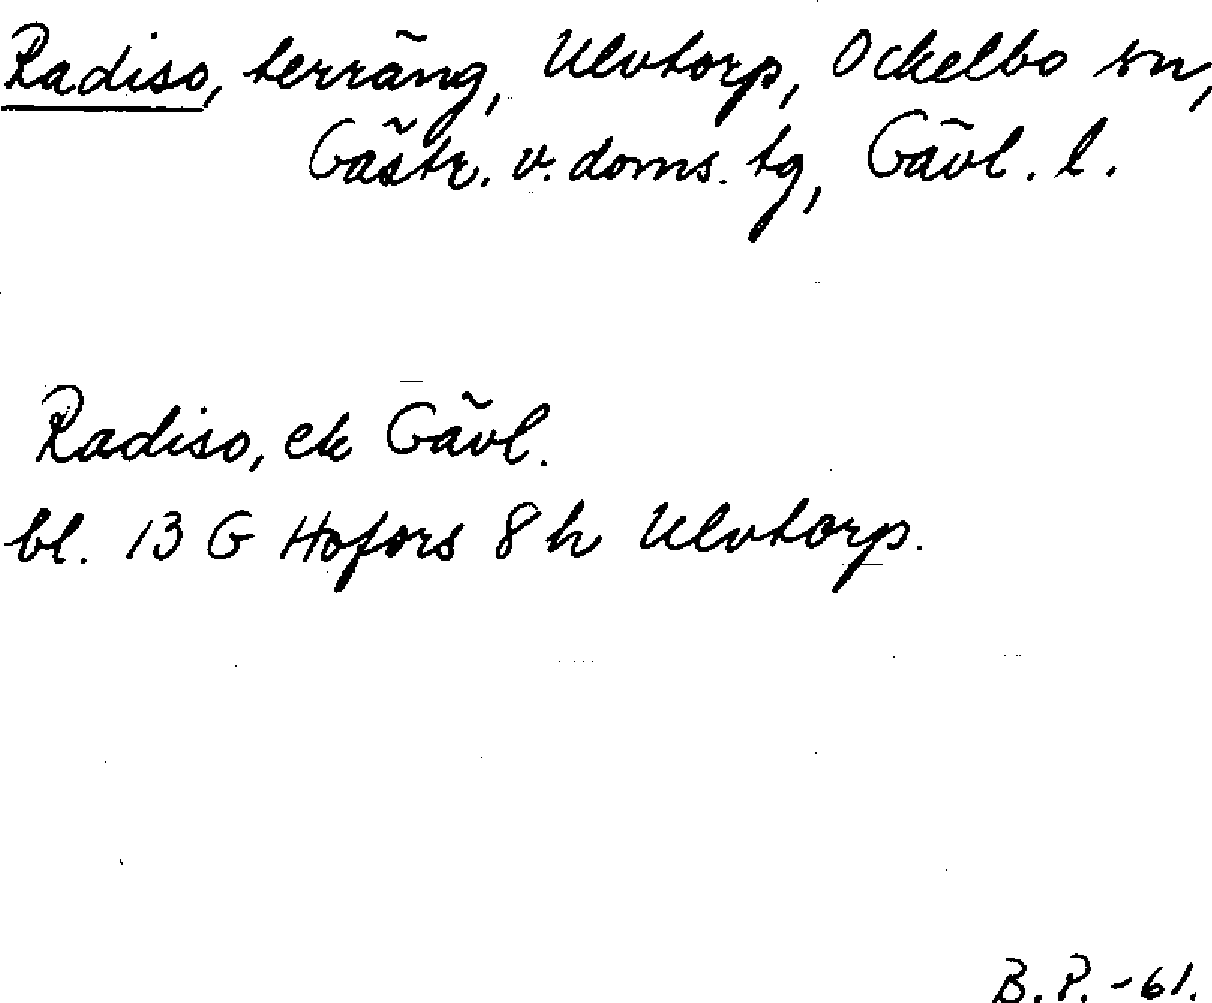 Radiso, terräng, Ulvtorp, Ockelbo sn,
Gästr. v. doms. tg, Gävl. l.
Radiso, ek Gävl.
bl. 13 G Hofors 8 h Ulvtorp.
B. P. -61.